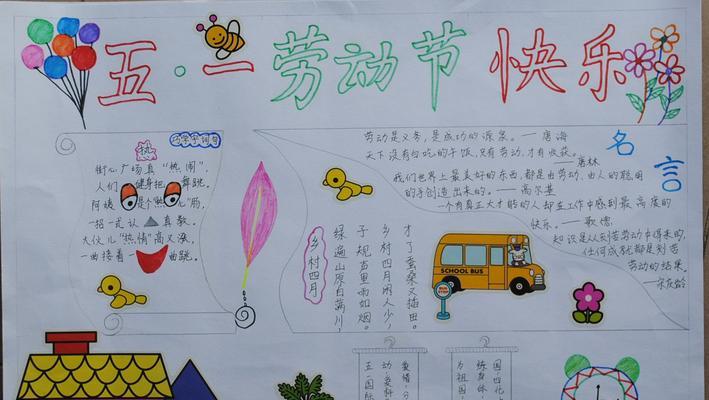 五·一劳动节 快乐
巧学字词句
热
街心广场真“热闹”，
人们 健身把 舞跳。
阿姨 是个“热 儿”肠，
一招一式认 真教。
大伙儿“热情”高又涨，
一曲接着一 曲跳。
名言
劳动是义务，是成功的源泉。——唐海
天下没有白吃的干饭，只有劳动，才有收获。
——唐林
我们世界上最美好的东西，都是由劳动、由人的聪明
的手创造出来的。——高尔基
一个有真正大才能的人却在工作中感到最高度的
快乐。——歌德
知识是从刻苦劳动中得来的，
任何成就都是刻苦
劳动的结果。
——宋庆龄
乡村四月
绿遍山原白满川，
子规声里雨如烟。
乡村四月闲人少，
才了蚕桑又插田。
SCHOOL BUS
BUS STOP
爱惜
动
五一国际
国
练身体
为祖国